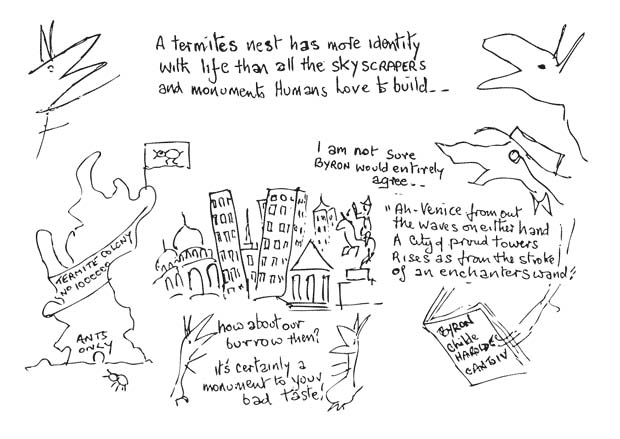 A termites nest has more identity
with life than all the SKYSCRAPERS
and monuments Humans Love to build--
I am not sure
BYRON would entirely
agree--
"Ah-Venice from out
the waves on either hand
A City of proud towers
Rises as from the stroke
of an enchanters wand"
TERMITE COLONY
NO 1000000
ANTS
ONLY
how about our
burrow then?
it's certainly a
monument to your
bad taste!
BYRON
Childe
HAROLDE
CANTO IV